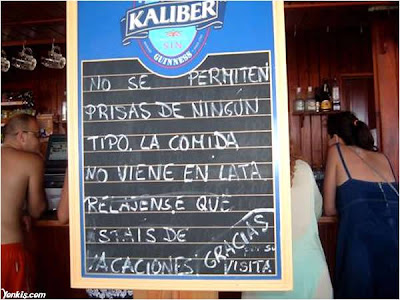 KALIBER
SIN
GUINNESS
NO SE PERMITEN
PRISAS DE NINGÚN
TIPO. LA COMIDA
NO VIENE EN LATA
RELAJENSE QUE
ESTAIS DE
VACACIONES. GRACIAS
POR SU
VISITA
Yonkis.com